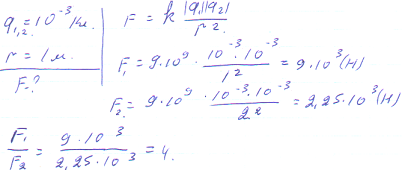 q₁,₂ = 10⁻³ Кл.
r = 1 м.
F-?
F = k |q₁||q₂| / r²
F₁ = 9·10⁹ · 10⁻³·10⁻³ / 1² = 9·10³ (Н)
F₂ = 9·10⁹ · 10⁻³·10⁻³ / 2² = 2,25·10³ (Н)
F₁ / F₂ = 9·10³ / 2,25·10³ = 4.